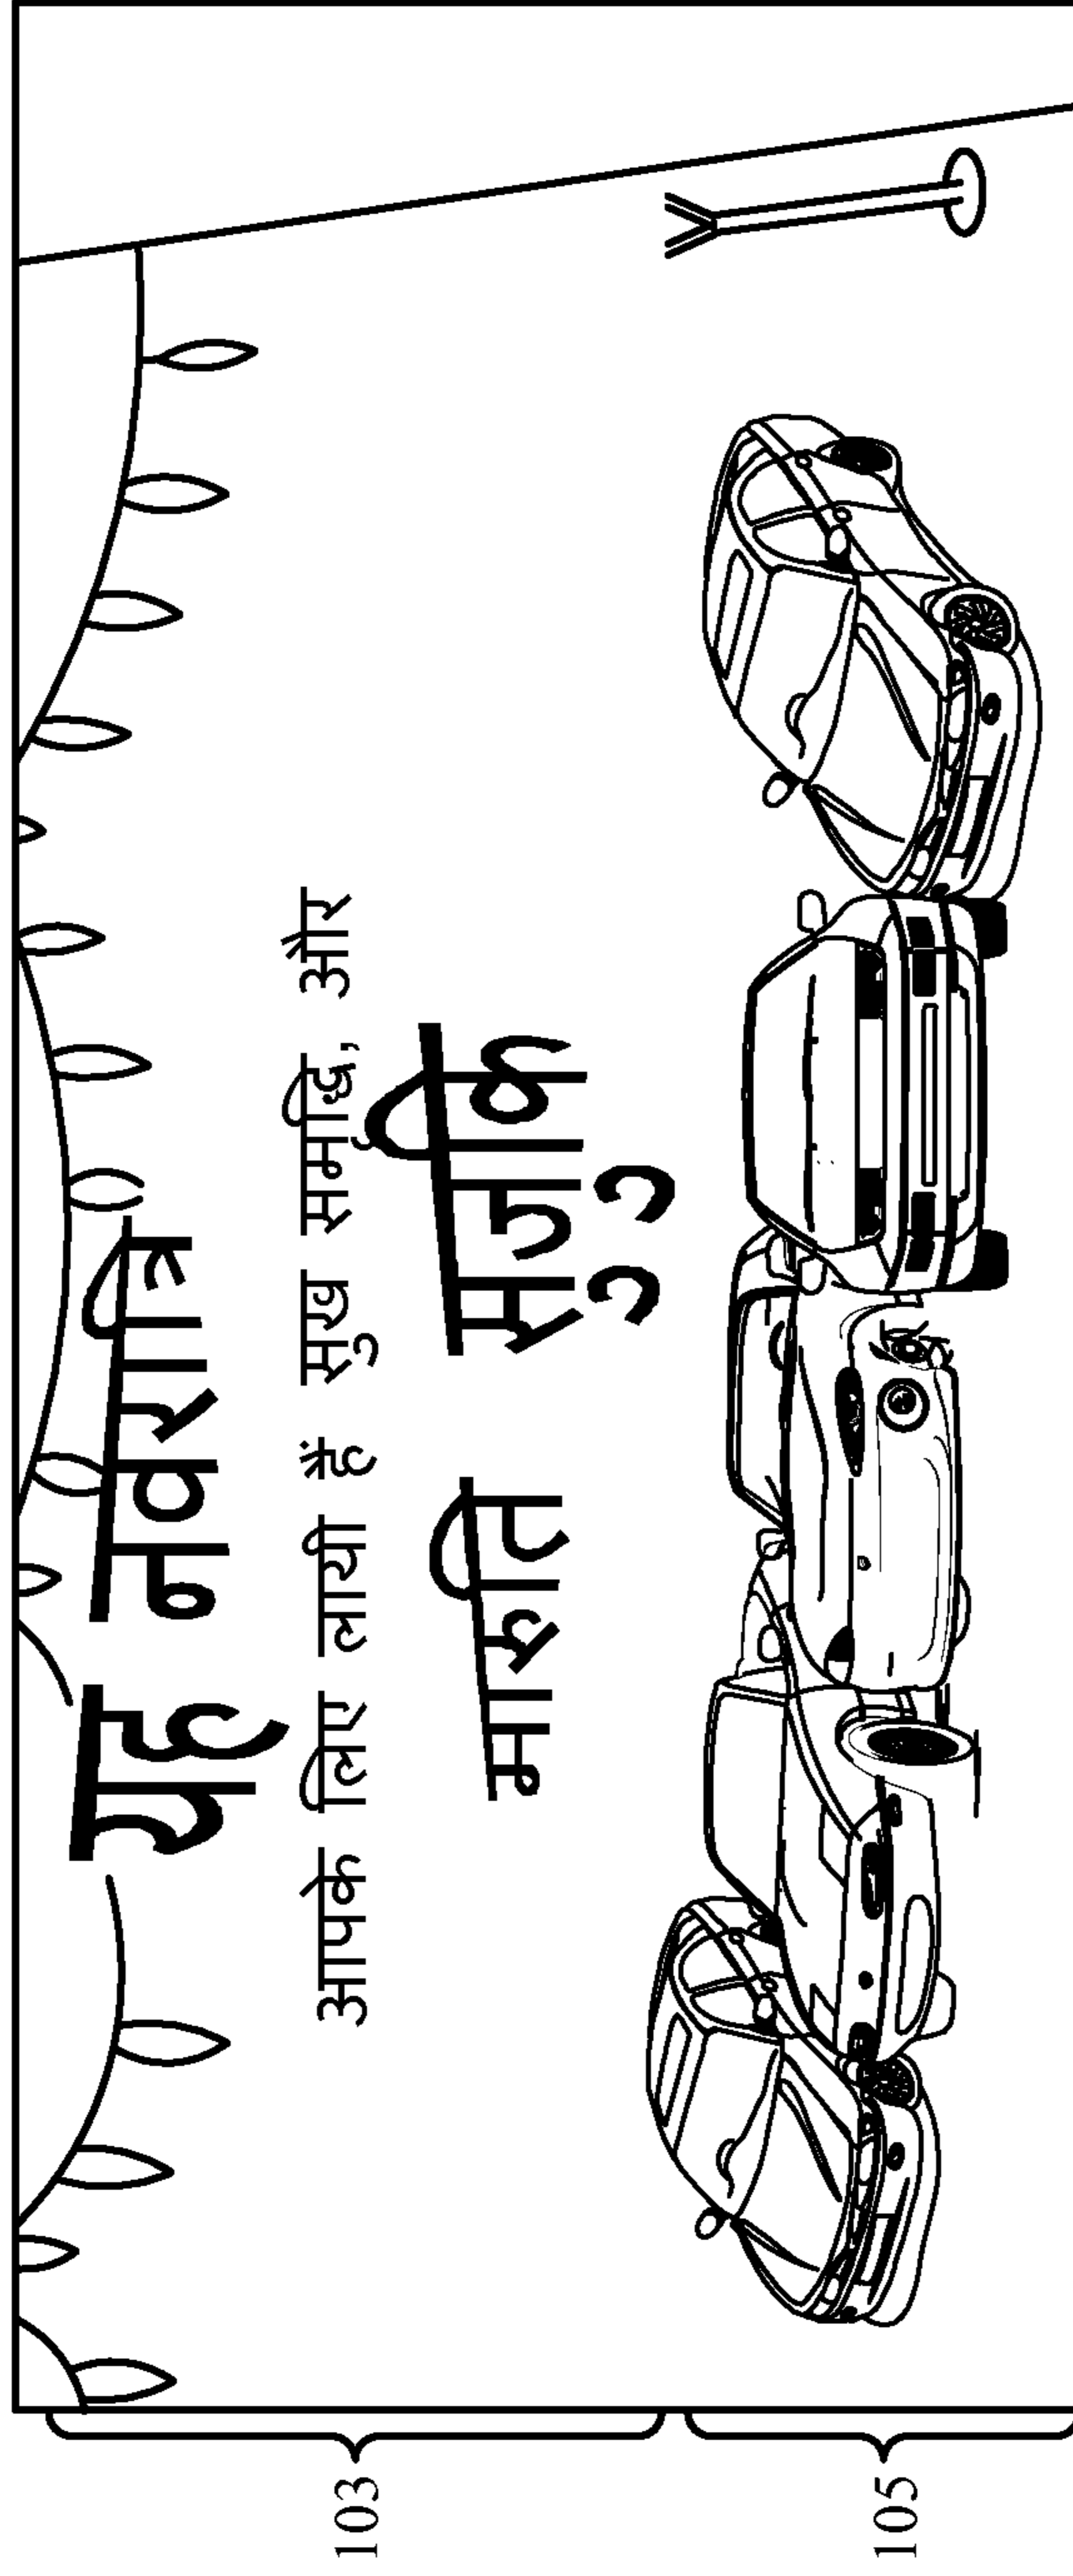 यह नवरात्रि
आपके लिए लायी है सुख समृद्धि, और
मारुति सुजुकि
103
105